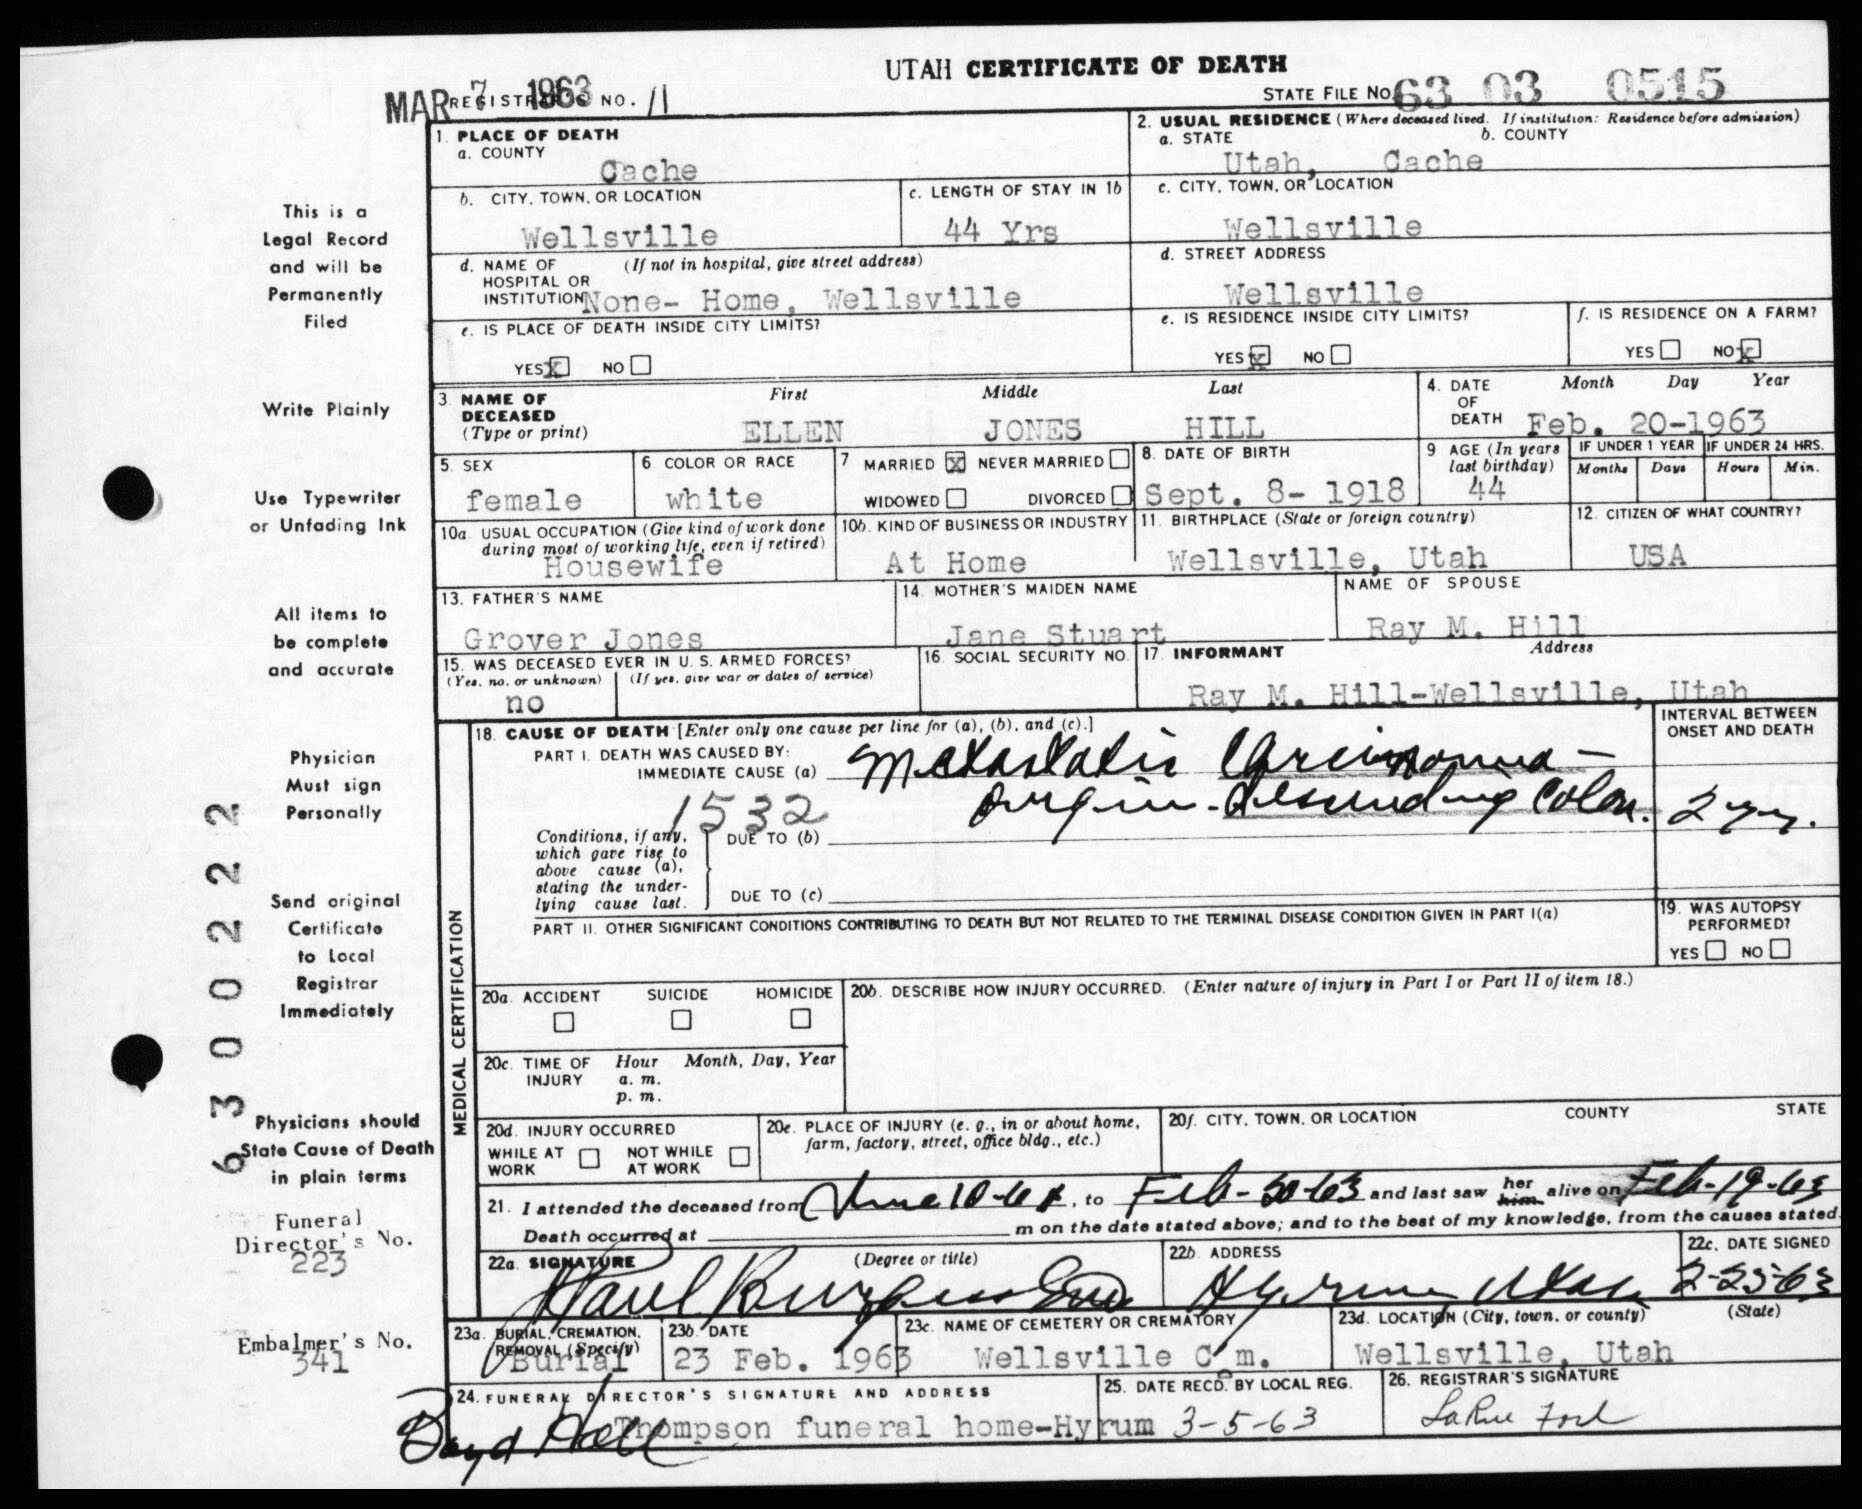 UTAH CERTIFICATE OF DEATH
MAR 7 1963 REGISTRAR'S NO. 11
STATE FILE NO. 63 03 0515
1. PLACE OF DEATH
a. COUNTY
Cache
2. USUAL RESIDENCE (Where deceased lived. If institution: Residence before admission)
a. STATE b. COUNTY
Utah, Cache
b. CITY, TOWN, OR LOCATION
Wellsville
c. LENGTH OF STAY IN 1b
44 Yrs
c. CITY, TOWN, OR LOCATION
Wellsville
d. NAME OF (If not in hospital, give street address)
HOSPITAL OR
INSTITUTION None- Home, Wellsville
d. STREET ADDRESS
Wellsville
e. IS PLACE OF DEATH INSIDE CITY LIMITS?
YES x NO
e. IS RESIDENCE INSIDE CITY LIMITS?
YES x NO
f. IS RESIDENCE ON A FARM?
YES NO x
3. NAME OF DECEASED
(Type or print)
First Middle Last
ELLEN JONES HILL
4. DATE OF DEATH
Month Day Year
Feb. 20-1963
5. SEX
female
6. COLOR OR RACE
white
7 MARRIED x NEVER MARRIED
WIDOWED DIVORCED
8. DATE OF BIRTH
Sept. 8- 1918
9 AGE (In years last birthday)
44
IF UNDER 1 YEAR IF UNDER 24 HRS.
Months Days Hours Min.
10a. USUAL OCCUPATION (Give kind of work done
during most of working life, even if retired)
Housewife
10b. KIND OF BUSINESS OR INDUSTRY
At Home
11. BIRTHPLACE (State or foreign country)
Wellsville, Utah
12. CITIZEN OF WHAT COUNTRY?
USA
13. FATHER'S NAME
Grover Jones
14. MOTHER'S MAIDEN NAME
Jane Stuart
NAME OF SPOUSE
Ray M. Hill
15. WAS DECEASED EVER IN U. S. ARMED FORCES?
(Yes, no, or unknown) (If yes, give war or dates of service)
no
16. SOCIAL SECURITY NO.
17. INFORMANT Address
Ray M. Hill-Wellsville, Utah
18. CAUSE OF DEATH [Enter only one cause per line for (a), (b), and (c).]
PART I. DEATH WAS CAUSED BY:
IMMEDIATE CAUSE (a) Metastatic Carcinoma -
origin - descending Colon.
1532
INTERVAL BETWEEN
ONSET AND DEATH
2 yr.
Conditions, if any,
which gave rise to
above cause (a),
stating the under-
lying cause last.
DUE TO (b)
DUE TO (c)
PART II. OTHER SIGNIFICANT CONDITIONS CONTRIBUTING TO DEATH BUT NOT RELATED TO THE TERMINAL DISEASE CONDITION GIVEN IN PART I(a)
19. WAS AUTOPSY
PERFORMED?
YES NO
MEDICAL CERTIFICATION
20a. ACCIDENT SUICIDE HOMICIDE
20b. DESCRIBE HOW INJURY OCCURRED. (Enter nature of injury in Part I or Part II of item 18.)
20c. TIME OF INJURY
Hour Month, Day, Year
a. m.
p. m.
20d. INJURY OCCURRED
WHILE AT WORK NOT WHILE AT WORK
20e. PLACE OF INJURY (e. g., in or about home,
farm, factory, street, office bldg., etc.)
20f. CITY, TOWN, OR LOCATION COUNTY STATE
21. I attended the deceased from June 10-61, to Feb-20-63 and last saw her him alive on Feb-19-63
Death occurred at m on the date stated above; and to the best of my knowledge, from the causes stated.
22a. SIGNATURE (Degree or title)
Paul Burgess MD
22b. ADDRESS
Hyrum Utah
22c. DATE SIGNED
2-25-63
23a. BURIAL, CREMATION,
REMOVAL (Specify)
Burial
23b. DATE
23 Feb. 1963
23c. NAME OF CEMETERY OR CREMATORY
Wellsville Cem.
23d. LOCATION (City, town, or county) (State)
Wellsville, Utah
24. FUNERAL DIRECTOR'S SIGNATURE AND ADDRESS
Boyd Hall Thompson funeral home-Hyrum
25. DATE RECD. BY LOCAL REG.
3-5-63
26. REGISTRAR'S SIGNATURE
LaRue Ford
This is a
Legal Record
and will be
Permanently
Filed
Write Plainly
Use Typewriter
or Unfading Ink
All items to
be complete
and accurate
Physician
Must sign
Personally
Send original
Certificate
to Local
Registrar
Immediately
Physicians should
State Cause of Death
in plain terms
Funeral
Director's No.
223
Embalmer's No.
341
6300222